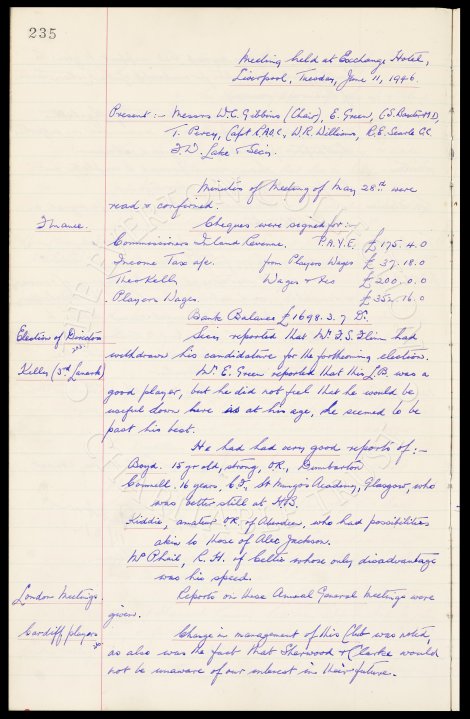 235
Meeting held at Exchange Hotel,
Liverpool, Tuesday, June 11, 1946.
Present :- Messrs W.C. Gibbins (Chair), E. Green, C.S. Baxter M.D,
T. Percy, Capt R.A.O.C, W.R. Williams, R.E. Searle C.C.
& Secy.
Minutes of Meeting of May 28th were
read & confirmed.
Finance. Cheques were signed for :-
Commissioners Inland Revenue. P.A.Y.E. £175. 4. 0
Income Tax a/c. from Players Wages £ 37. 18. 0
Theo Kelly Wages & Fees £200. 0. 0
Players Wages. £352. 16. 0
Bank Balance £1698. 3. 7 Dr.
Election of Directors Secy reported that Mr. F.S. Flinn had
withdrawn his candidature for the forthcoming election.
Kelly (3rd Lanark) Mr. E. Green reported that this L.B. was a
good player, but he did not feel that he would be
useful down here as at his age, he seemed to be
past his best.
He had had very good reports of :-
Boyd. 15 yr old, strong, O.R., Dumbarton
Connell. 16 years, C.F., St Mungo's Academy, Glasgow, who
was better still at
Kiddie, amateur O.R. of Aberdeen, who had possibilities
akin to those of Alec Jackson.
McPhail, R.H. of Celtic whose only disadvantage
was his speed.
London Meetings. Reports on these Annual General Meetings were
given.
Cardiff players Change in management of this Club was noted,
as also was the fact that Sherwood & Clarke would
not be unaware of our interest in their future.